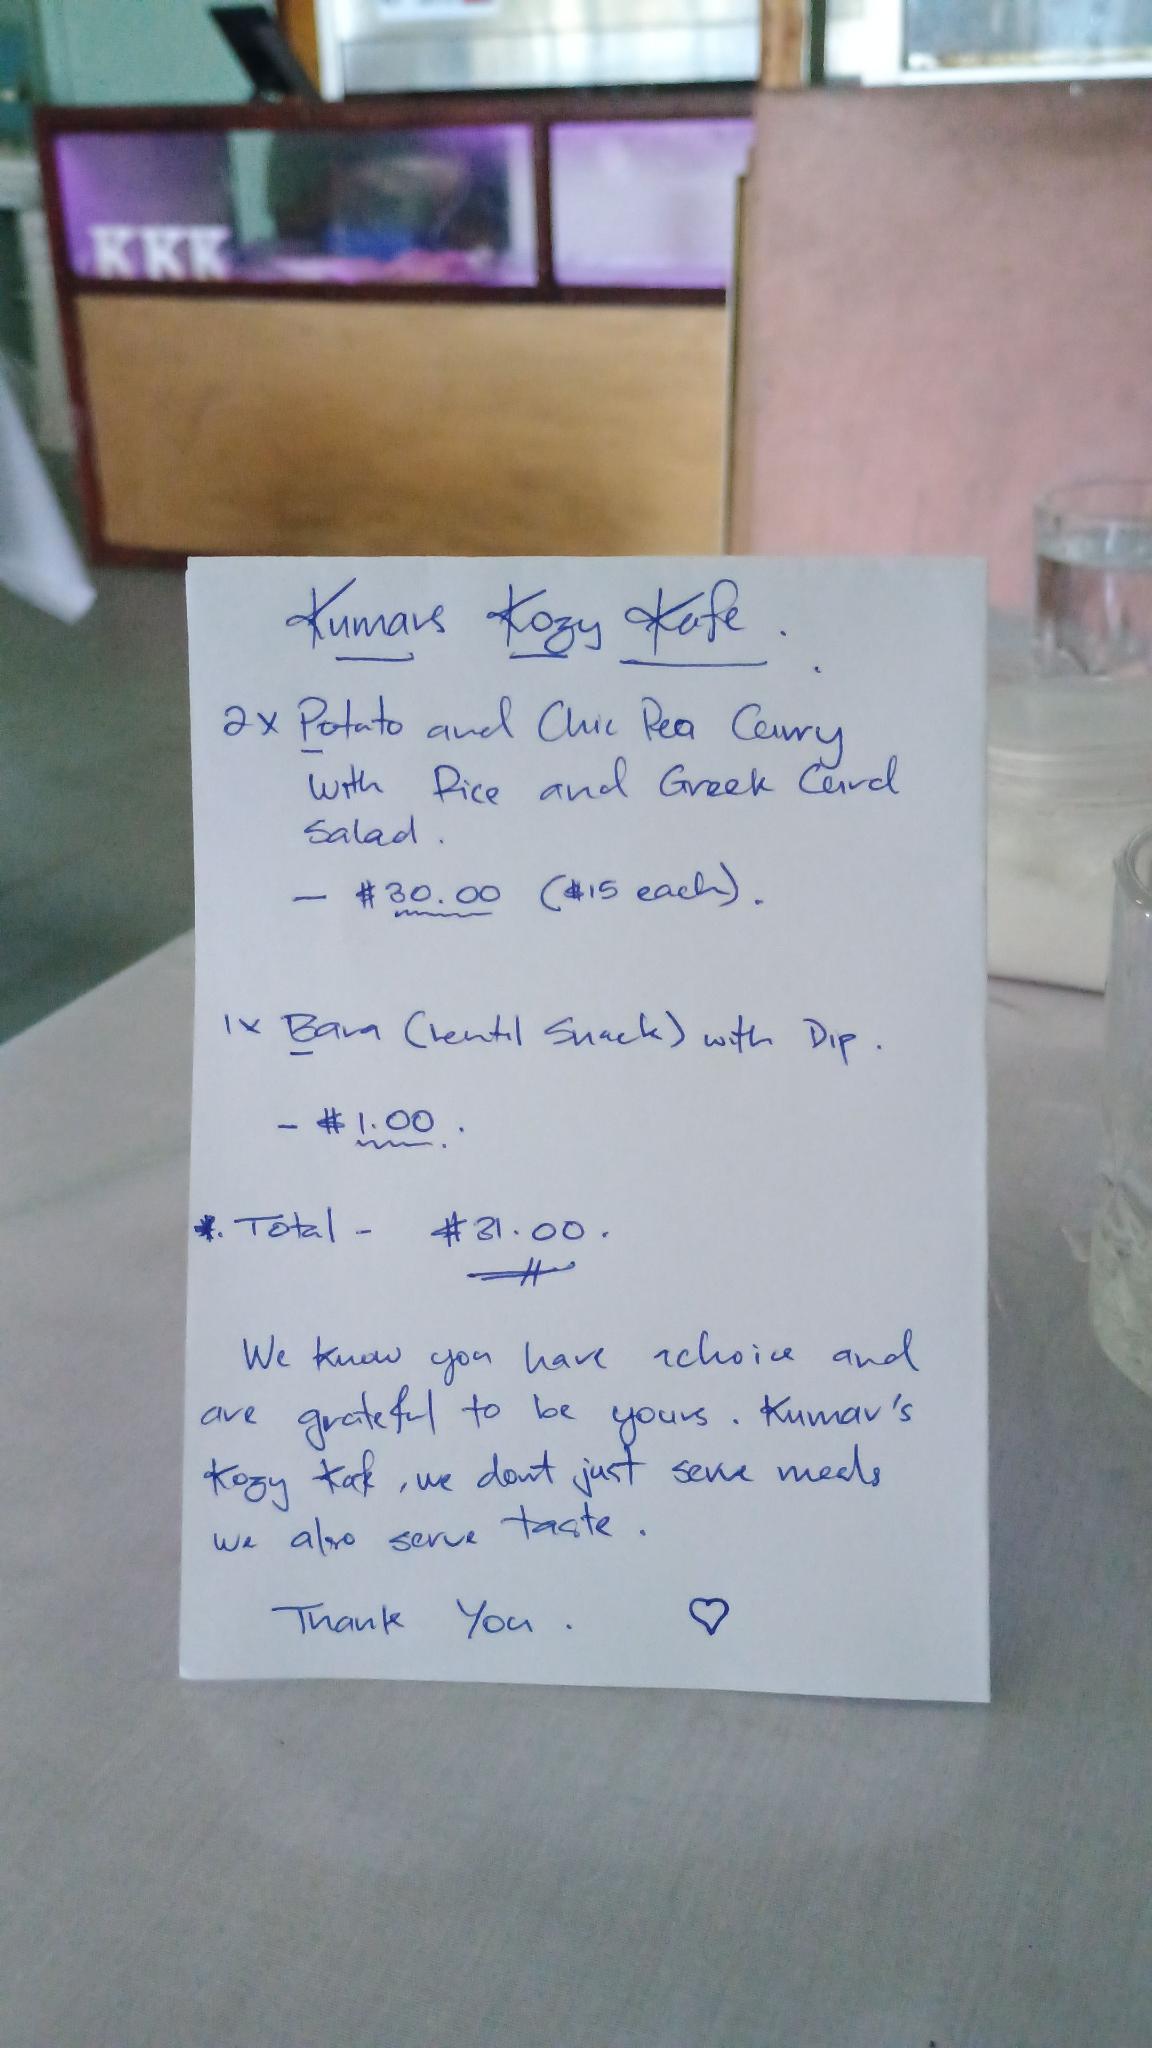 KKK
Kumars Kozy Kafe.
2x Potato and Chic Pea Curry
with Rice and Greek Curd
Salad.
- $30.00 ($15 each).
1x Bara (Lentil Snack) with Dip.
- $1.00.
*. Total - $31.00.
We know you have achoice and
are grateful to be yours. Kumar's
Kozy Kafe, we dont just serve meals
we also serve taste.
Thank You. ♡